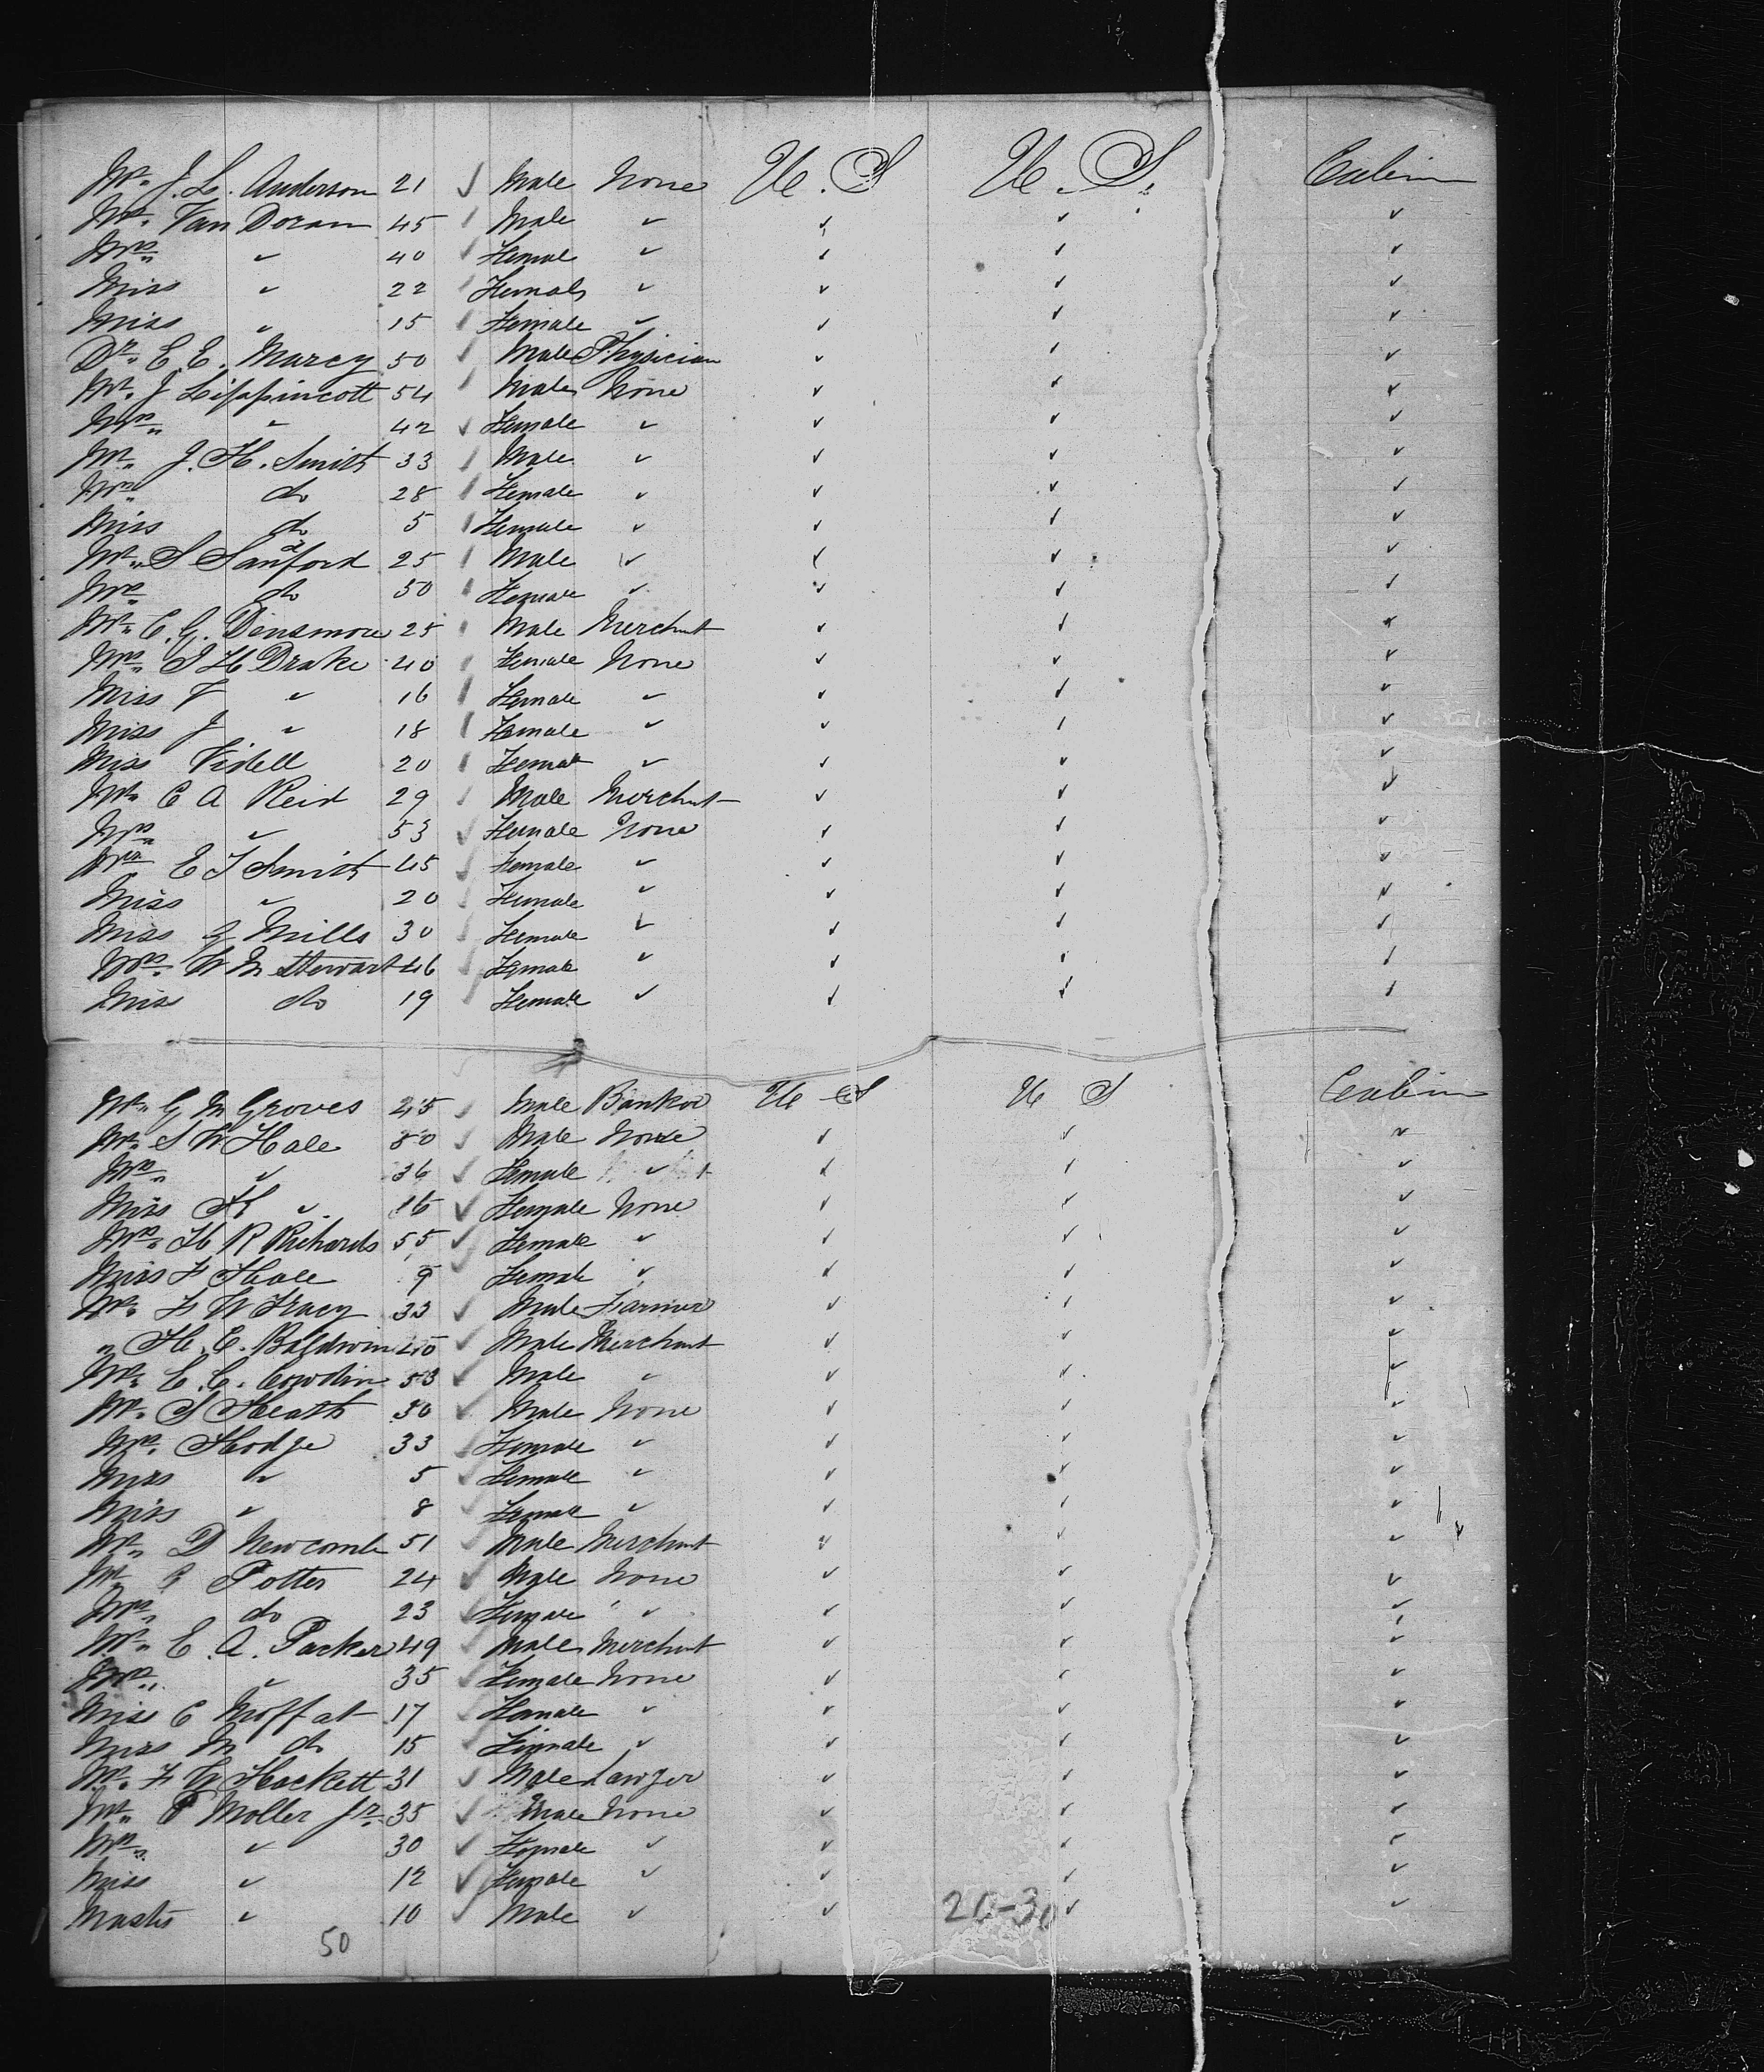 Mr. J. L. Anderson 21 ✓ Male None U. S U. S. Cabin
Mr. Van Doran 45 Male ✓ ✓ ✓ ✓
Mrs. ✓ 40 ✓ Female ✓ ✓ ✓ ✓
Miss ✓ 22 Female ✓ ✓ ✓ ✓
Miss ✓ 15 Female ✓ ✓ ✓ ✓
Dr. E. E. Marcy 50 Male Physician ✓ ✓ ✓
Mr. J Lippincott 54 Male None ✓ ✓ ✓
Mrs. ✓ 42 ✓ Female ✓ ✓ ✓ ✓
Mr. J. H. Smith 33 Male ✓ ✓ ✓ ✓
Mrs. do 28 Female ✓ ✓ ✓ ✓
Miss do 5 Female ✓ ✓ ✓ ✓
Mr. S Sanford 25 Male ✓ ✓ ✓ ✓
Mrs. do 50 Female ✓ ✓ ✓ ✓
Mr. C. G. Dinsmore 25 Male Merchnt ✓ ✓ ✓
Mrs. S H Drake 40 Female None ✓ ✓ ✓
Miss F ✓ 16 Female ✓ ✓ ✓ ✓
Miss J ✓ 18 Female ✓ ✓ ✓ ✓
Miss 20 Female ✓ ✓ ✓ ✓
Mr. C A Reid 29 Male Merchnt ✓ ✓ ✓
Mrs. ✓ 53 ✓ Female None ✓ ✓ ✓
Mrs E T Smith 45 ✓ Female ✓ ✓ ✓ ✓
Miss ✓ 20 Female ✓ ✓ ✓ ✓
Miss Mills 30 Female ✓ ✓ ✓ ✓
Mrs. W M Stewart 46 Female ✓ ✓ ✓ ✓
Miss do 19 Female ✓ ✓ ✓ ✓
Mr. G M Groves 45 ✓ Male Banker U S U S Cabin
Mr. S W Hale Male None ✓ ✓ ✓
Mrs. ✓ 36 ✓ Female ✓ ✓ ✓ ✓
Miss ✓ 16 ✓ Female None ✓ ✓ ✓
Mrs. H R Richards 55 ✓ Female ✓ ✓ ✓ ✓
Miss F Hale 9 Female ✓ ✓ ✓ ✓
Mr. F W Tracy 33 ✓ Male Farmer ✓ ✓ ✓
" H. C. Baldwin 40 ✓ Male Merchant ✓ ✓ ✓
Mr. E. C. Cowdin 53 ✓ Male ✓ ✓ ✓ ✓
Mr. S Heath 50 ✓ Male None ✓ ✓ ✓
Mrs. Hodge 33 ✓ Female ✓ ✓ ✓ ✓
Miss ✓ 5 ✓ Female ✓ ✓ ✓ ✓
Miss ✓ 8 ✓ Female ✓ ✓ ✓ ✓
Mr. D Newcomb 51 ✓ Male Merchnt ✓ ✓ ✓
Mr Potter 24 ✓ Male None ✓ ✓ ✓
Mrs. do 23 ✓ Female ✓ ✓ ✓ ✓
Mr. E. A. Packer 49 ✓ Male Merchnt ✓ ✓ ✓
Mrs. ✓ 35 ✓ Female None ✓ ✓ ✓
Miss C Moffat 17 ✓ Female ✓ ✓ ✓ ✓
Miss M do 15 ✓ Female ✓ ✓ ✓ ✓
Mr. F G Hackett 31 ✓ Male Lawyer ✓ ✓ ✓
Mr. P Moller Jr. 35 ✓ Male None ✓ ✓ ✓
Mrs. ✓ 30 ✓ Female ✓ ✓ ✓ ✓
Miss ✓ 12 ✓ Female ✓ ✓ ✓ ✓
Master ✓ 10 ✓ Male ✓ ✓ ✓ ✓
50